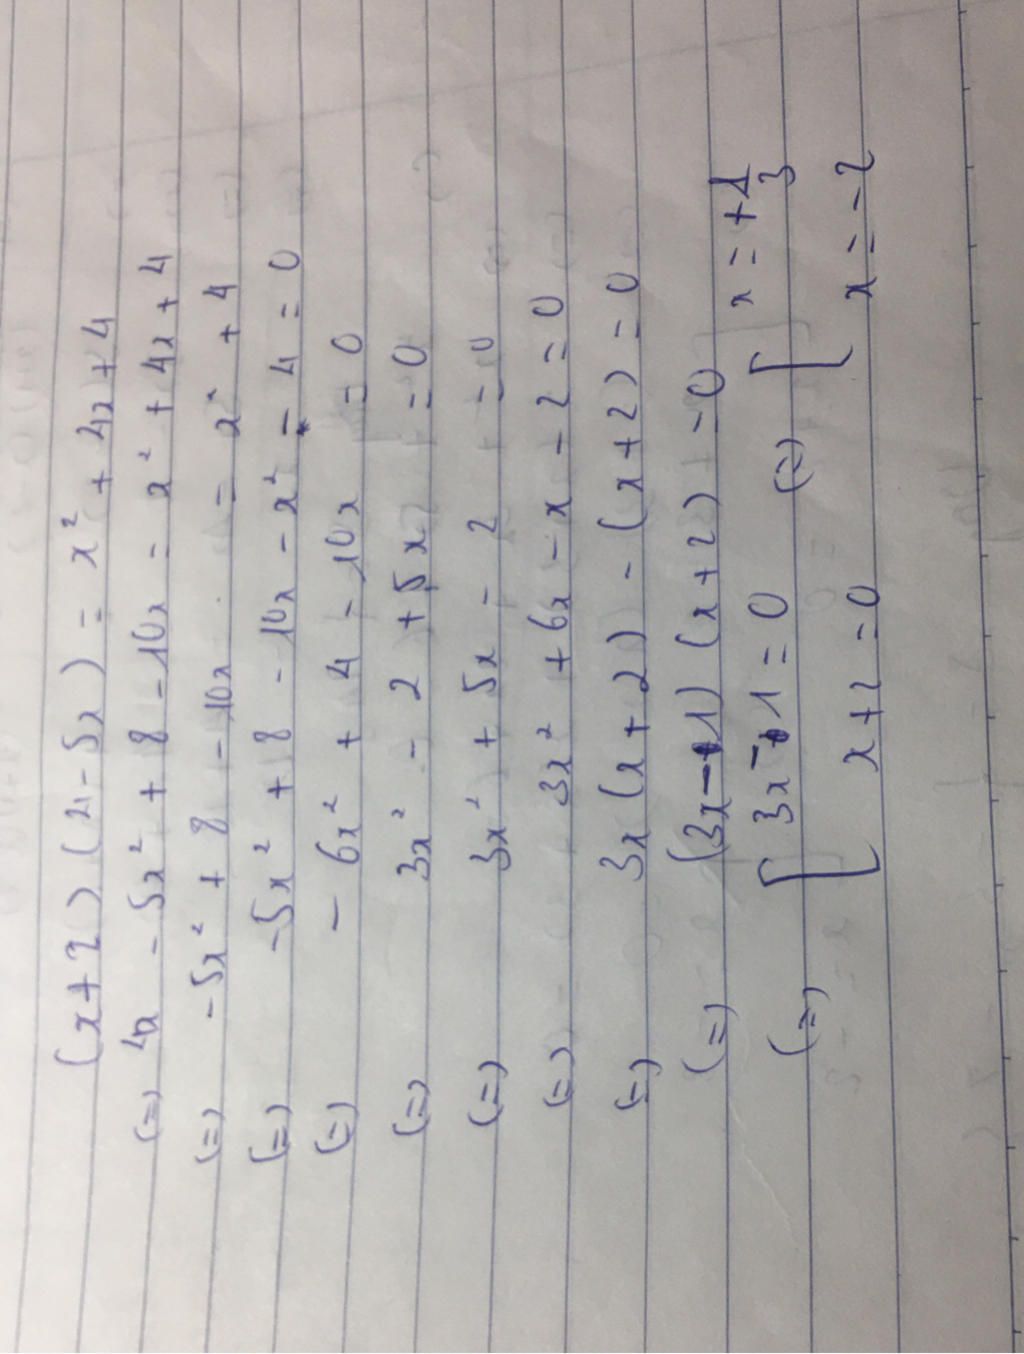 (x+2)(4-5x) = x² + 4x + 4
(=) 4x - 5x² + 8 - 10x = x² + 4x + 4
(=) -5x² + 8 - 10x = x² + 4
(=) -5x² + 8 - 10x - x² - 4 = 0
(=) - 6x² + 4 - 10x = 0
(=) 3x² - 2 + 5x = 0
(=) 3x² + 5x - 2 = 0
(=) 3x² + 6x - x - 2 = 0
(=) 3x(x+2) - (x+2) = 0
(=) (3x-1)(x+2) = 0
(=) [ 3x - 1 = 0 (=) [ x = +1/3
x+2 = 0 x = -2